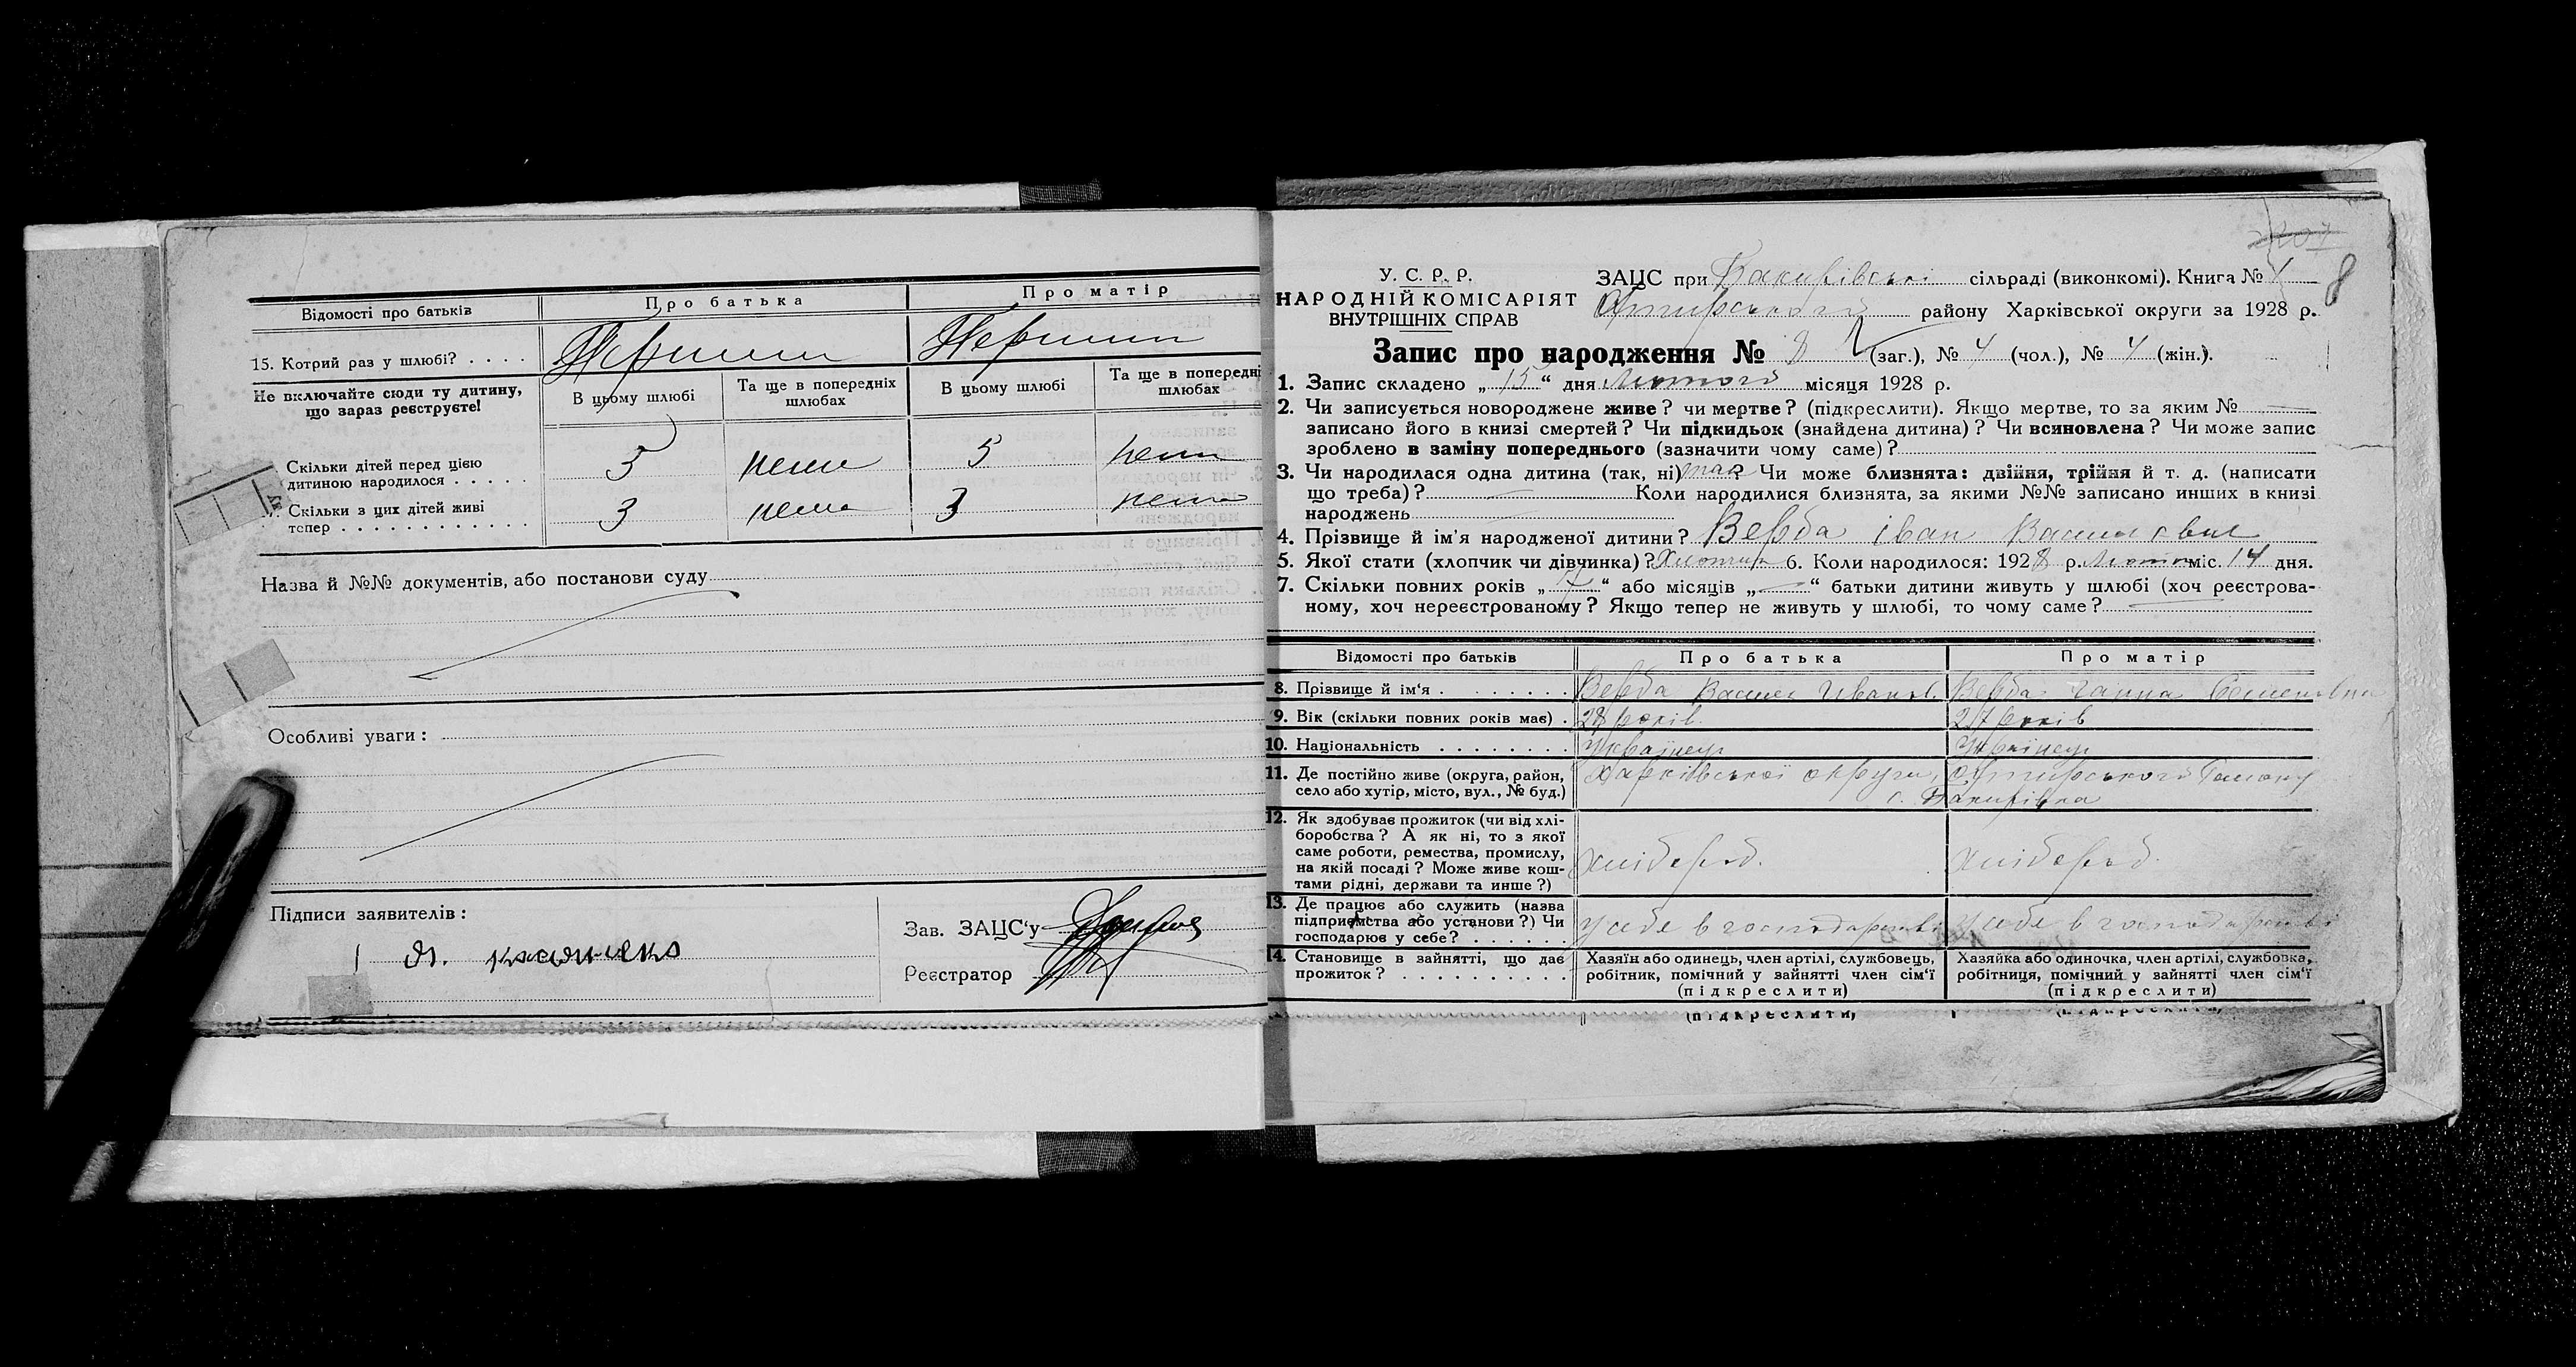 Відомості про батьків
Про батька
Про матір
15. Котрий раз у шлюбі? . . . .
Перший
Перший
Не включайте сюди ту дитину,
що зараз реєструєте!
В цьому шлюбі
Та ще в попередніх
шлюбах
В цьому шлюбі
Та ще в попередні
шлюбах
Скільки дітей перед цією
дитиною народилося . . . . .
5
нема
5
нема
Скільки з цих дітей живі
тепер . . . . . . . . . . . .
3
нема
3
нема
Назва й №№ документів, або постанови суду
Особливі уваги:
Підписи заявителів:
Зав. ЗАЦС'у
Реєстратор
207
8
У. С. Р. Р.
НАРОДНІЙ КОМІСАРІЯТ
ВНУТРІШНІХ СПРАВ
ЗАЦС при сільраді (виконкомі). Книга № 1
району Харківської округи за 1928 р.
Запис про народження № 8 (заг.), № 4 (чол.), № 4 (жін.).
1. Запис складено „ 15 “ дня Лютого місяця 1928 р.
2. Чи записується новороджене живе? чи мертве? (підкреслити). Якщо мертве, то за яким №
записано його в книзі смертей? Чи підкидьок (знайдена дитина)? Чи всиновлена? Чи може запис
зроблено в заміну попереднього (зазначити чому саме)?
3. Чи народилася одна дитина (так, ні) так? Чи може близнята: двійня, трійня й т. д. (написати
що треба)? Коли народилися близнята, за якими №№ записано инших в книзі
народжень
4. Прізвище й ім'я народженої дитини? Верба Іван Васильевич
5. Якої стати (хлопчик чи дівчинка)? Хлопчик 6. Коли народилося: 1928 р. Лютого міс. 14 дня.
7. Скільки повних років „ 7 “ або місяців „ — “ батьки дитини живуть у шлюбі (хоч реєстрова-
ному, хоч нереєстрованому? Якщо тепер не живуть у шлюбі, то чому саме?
Відомості про батьків
Про батька
Про матір
8. Прізвище й ім'я . . . . . . . .
Верба Василь Иванов.
Верба Ганна Семеновна
9. Вік (скільки повних років має) .
28 років
27 років
10. Національність . . . . . . . .
Українец
Українец
11. Де постійно живе (округа, район,
село або хутір, місто, вул., № буд.)
Харківської округи, Охтирського Району
12. Як здобуває прожиток (чи від хлі-
боробства? А як ні, то з якої
саме роботи, ремества, промислу,
на якій посаді? Може живе кош-
тами рідні, держави та инше?)
хлібороб.
хлібороб.
13. Де працює або служить (назва
підприємства або установи?) Чи
господарює у себе? . . . . . .
у себе в господарстві
у себе в господарстві
14. Становище в зайнятті, що дає
прожиток? . . . . . . . . . .
Хазяїн або одинець, член артілі, службовець,
робітник, помічний у зайнятті член сім'ї
(підкреслити)
Хазяйка або одиночка, член артілі, службовка,
робітниця, помічний у зайнятті член сім'ї
(підкреслити)
(підкреслити)